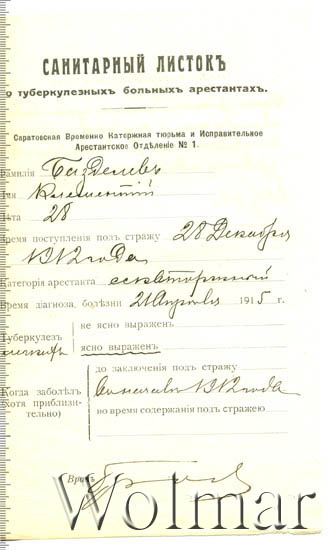 САНИТАРНЫЙ ЛИСТОКЪ
о туберкулезныхъ больныхъ арестантахъ.
Саратовская Временно Каторжная тюрьма и Исправительное
Арестантское Отдѣленіе № 1.
Фамилія
Имя Климентій
Лѣта 28
Время поступленія подъ стражу 28 Декабря
1912 года
Категорія арестанта
Время діагноза, болѣзни 21 Апрѣля 1915 г.
не ясно выраженъ
Туберкулезъ
ясно выраженъ
до заключенія подъ стражу
Когда заболѣлъ 1912 года
(Хотя приблизительно) во время содержанія подъ стражею
Врачъ
Wolmar